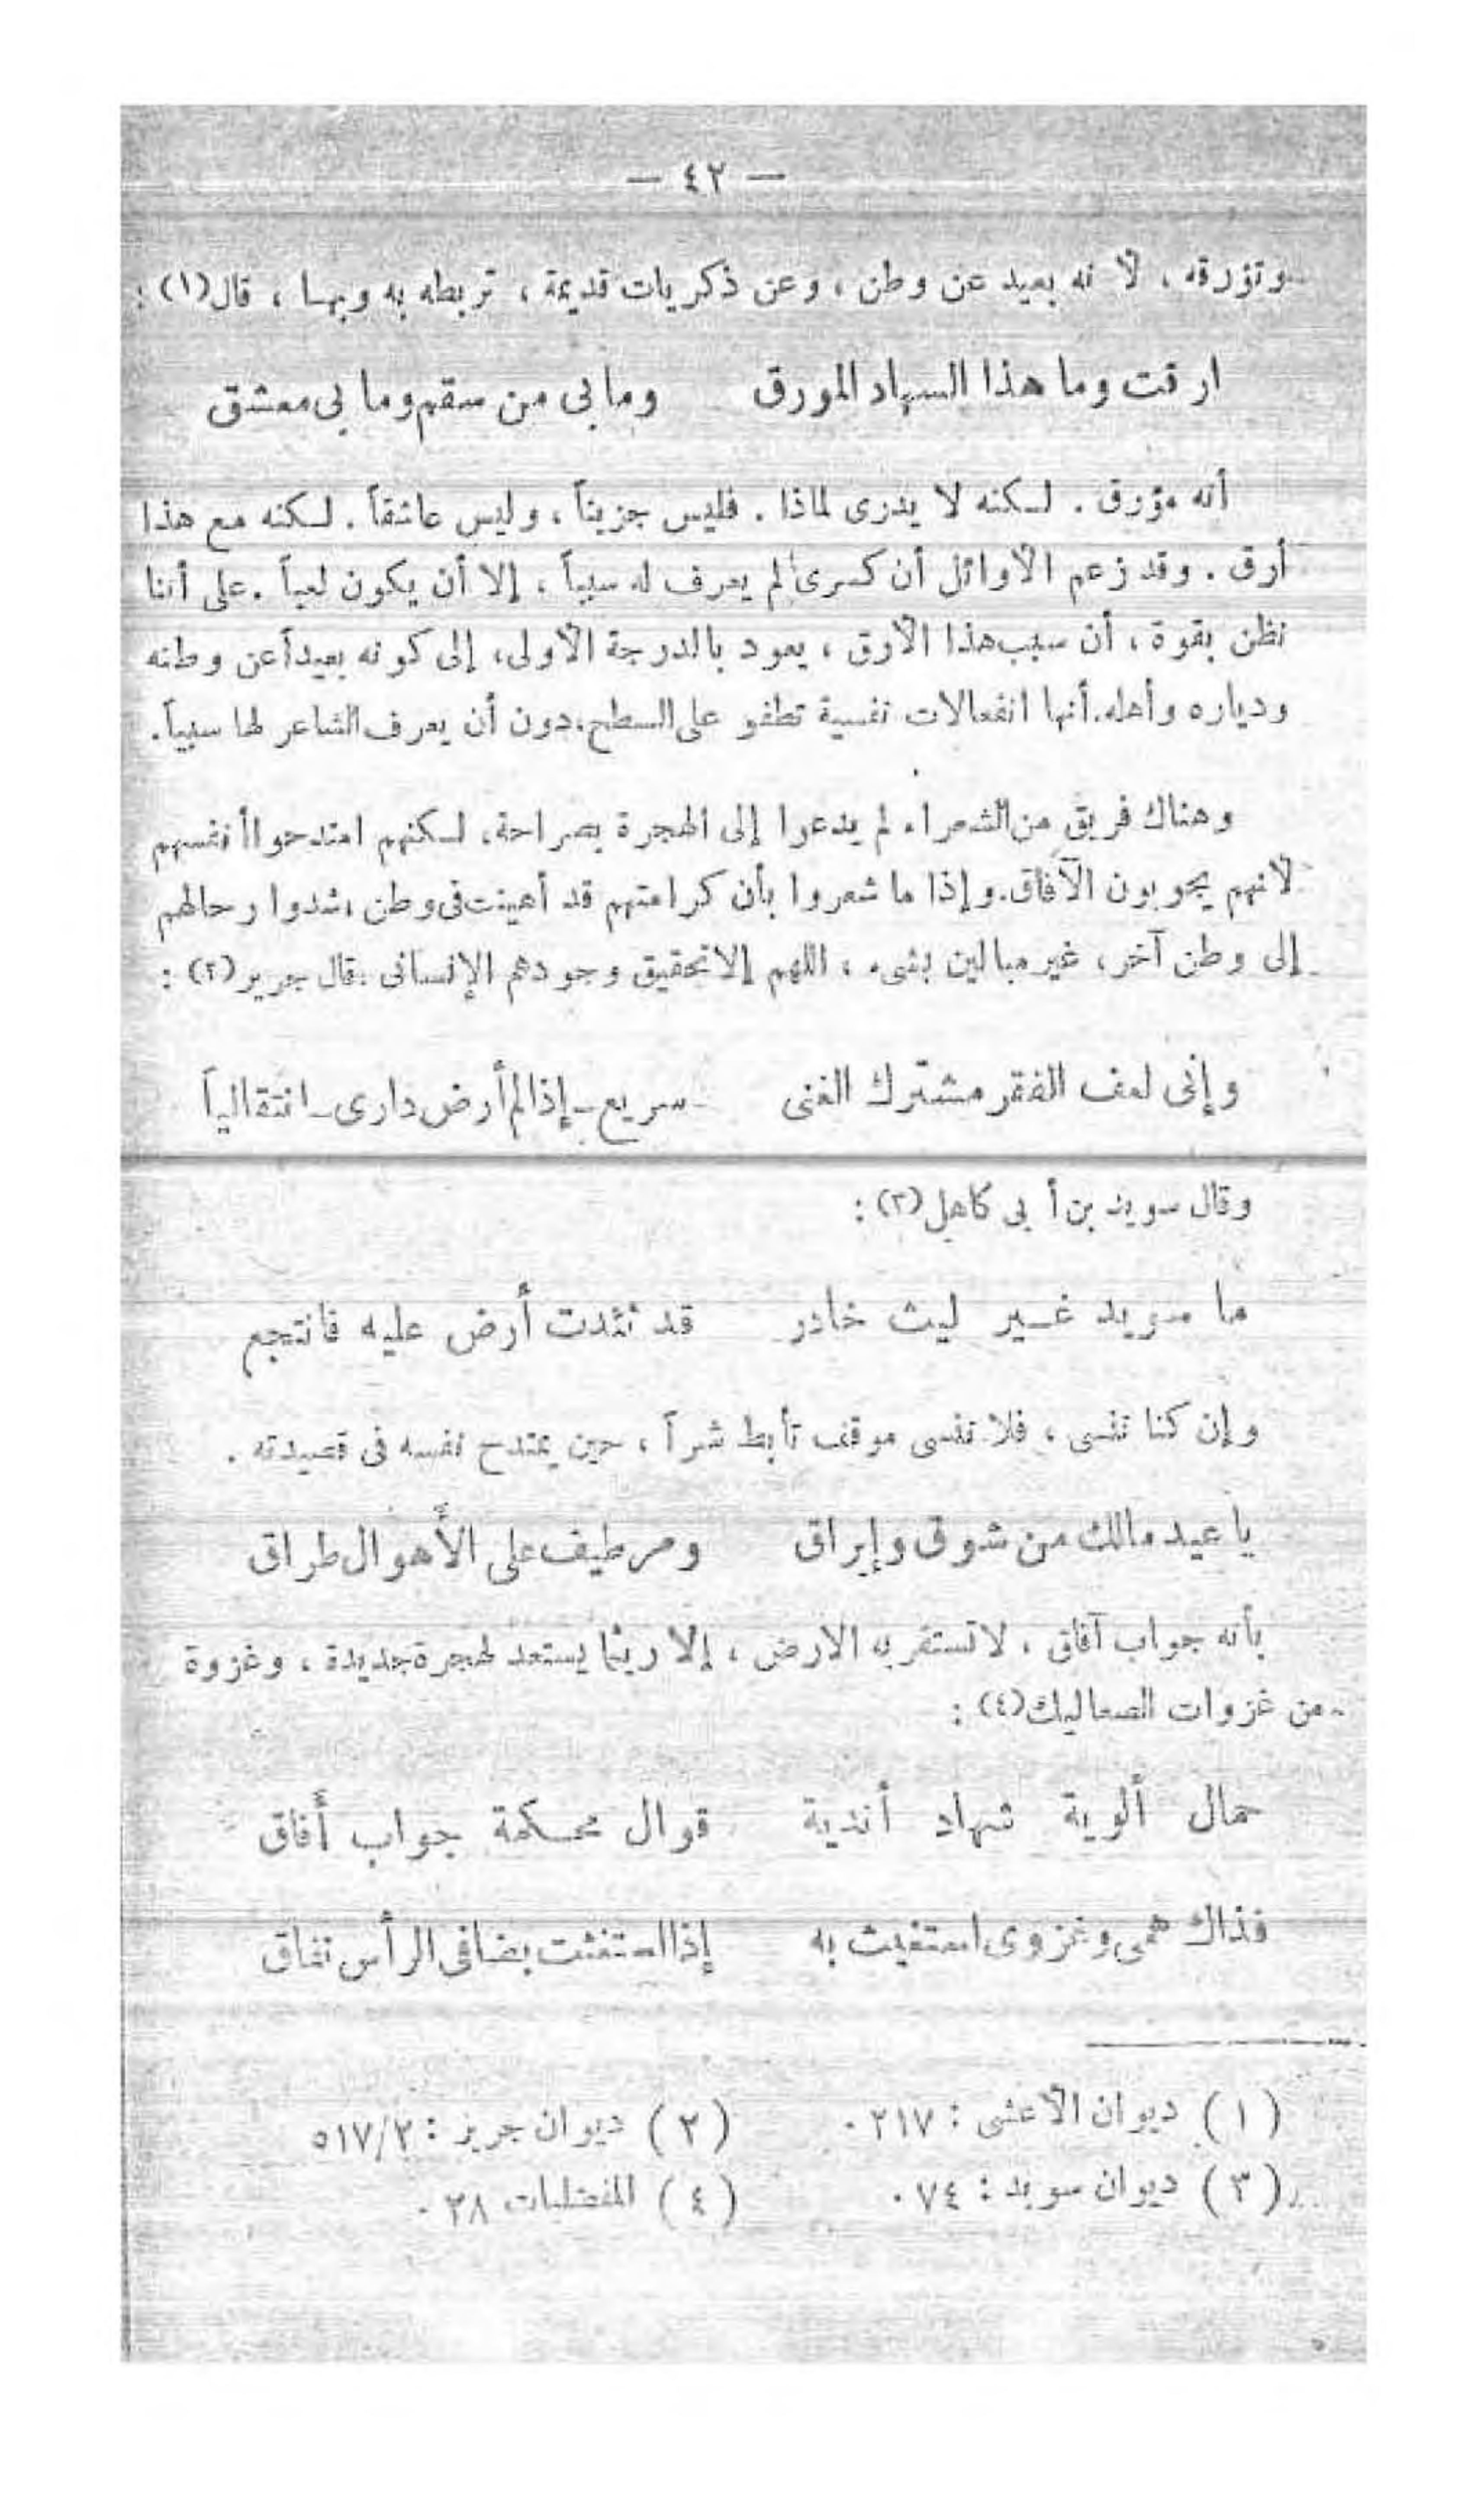 — ٤٢ —
وتؤرقه ، لأنه بعيد عن وطن ، وعن ذكريات قديمة ، تربطه به وبها ، قال(١) :
ارقت وما هذا السهاد المورق وما بى من سقم وما بى معشق
أنه مؤرق . لكنه لا يدرى لماذا . فليس حزيناً ، وليس عاشقاً . لكنه مع هذا
أرق . وقد زعم الأوائل أن كسرى لم يعرف له سبباً ، إلا أن يكون لعباً . على أننا
نظن بقوة ، أن سبب هذا الأرق ، يعود بالدرجة الأولى، إلى كونه بعيداً عن وطنه
ودياره وأهله. أنها انفعالات نفسية تطفو على السطح، دون أن يعرف الشاعر لها سبباً.
وهناك فريق من الشعراء لم يدعوا إلى الهجرة بصراحة، لكنهم امتدحوا أنفسهم
لأنهم يجوبون الآفاق. وإذا ما شعروا بأن كرامتهم قد أهينت فى وطن ، شدوا رحالهم
إلى وطن آخر، غير مبالين بشىء ، اللهم إلا تحقيق وجودهم الإنسانى . قال جرير(٢) :
وإنى لعف الفقر مشترك الغنى سريع ـ إذا لم أرض دارى ـ انتقالياً
وقال سويد بن أبى كاهل(٣) :
ما سويد غير ليث خادر قد ثئدت أرض عليه فانتجع
وإن كنا ننسى ، فلا ننسى موقف تأبط شراً ، حين يمتدح نفسه فى قصيدته .
يا عيد مالك من شوق وإيراق ومر طيف على الأهوال طراق
بأنه جواب آفاق ، لا تستقر به الارض ، إلا ريثما يستعد لهجرة جديدة ، وغزوة
من غزوات الصعاليك(٤) :
حمال ألوية شهاد أندية قوال محكمة جواب أفاق
فذاك همى وغزوى استغيث به إذا استغثت بضافى الرأس نغاق
(١) ديوان الأعشى : ٢١٧ . (٢) ديوان جرير : ٥١٧/٢
(٣) ديوان سويد : ٧٤ . (٤) المفضليات ٢٨ .